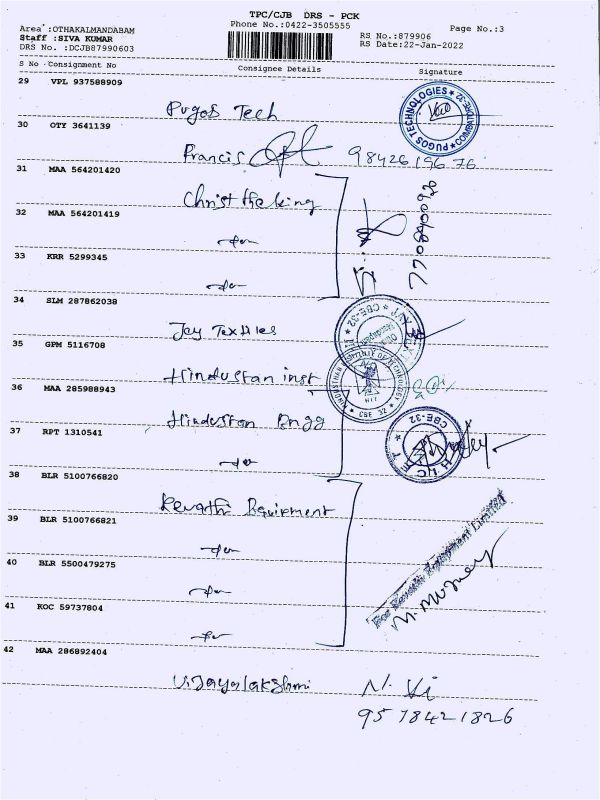 TPC/CJB DRS - PCK
Area :OTHAKALMANDABAM Phone No.:0422-3505555 Page No.:3
Staff :SIVA KUMAR RS No.:879906
DRS No. :DCJB87990603 RS Date:22-Jan-2022
S No Consignment No Consignee Details Signature
29 VPL 937588909
Pugos Tech
PUGOS TECHNOLOGIES ★ COIMBATORE-32 ★
30 OTY 3641139
Francis 9842619676
31 MAA 564201420
Christ the king
7708900920
32 MAA 564201419
33 KRR 5299345
34 SLM 287862038
Jay Textiles
CBE-32
35 GPM 5116708
Hindustan inst
HINDUSTHAN INSTITUTE OF TECHNOLOGY
HIT
CBE 32
36 MAA 285988943
Hindustan Engg
CBE-32
H.I.C.E.T
37 RPT 1310541
38 BLR 5100766820
Revathi Equipment
For Revathi Equipment Limited
39 BLR 5100766821
40 BLR 5500479275
41 KOC 59737804
42 MAA 286892404
Vijayalakshmi N. Vi
9578421826